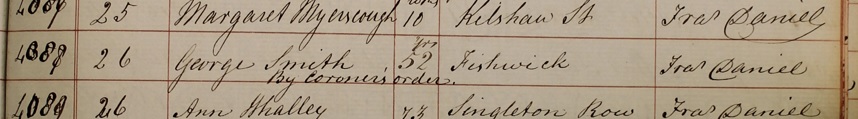 25 Margaret Myerscough 10 Kilshaw St Fras Daniel
yrs
26 George Smith 52 Fishwick Fras Daniel
By Coroners order.
4089 26 Ann Whalley 73 Singleton Row Fras Daniel